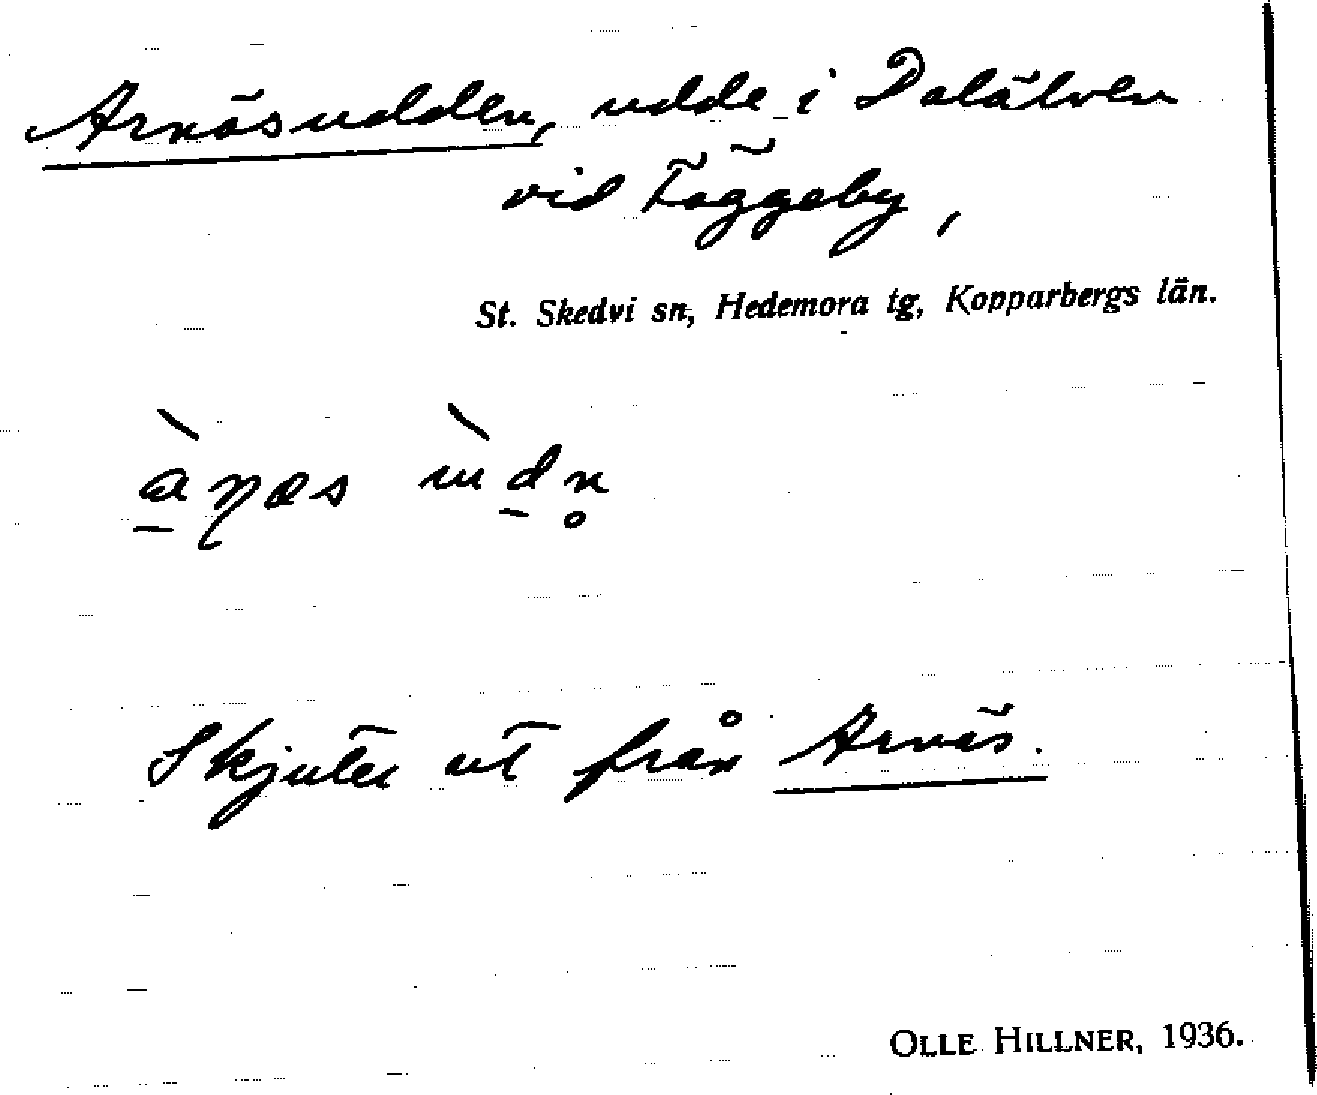 Arnäsudden, udde i Dalälven
vid Fäggeby,
St. Skedvi sn, Hedemora tg, Kopparbergs län.
Skjuter ut från Arnäs.
OLLE HILLNER, 1936.